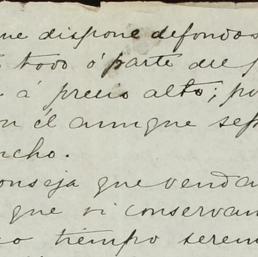 que dispone de fondos
todo ó parte del
á precio alto; po
él aunque sep
ncho.
conseja que venda
que si conservam
tiempo serem